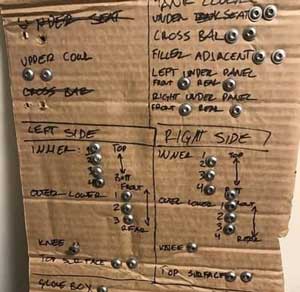 UNDER SEAT
UPPER COWL
CROSS BAR
UNDER TANK SEAT
CROSS BAR
FILLER ADJACENT
LEFT UNDER PANEL
FRONT REAR
RIGHT UNDER PANEL
FRONT REAR
LEFT SIDE
INNER: 1 TOP
2
3
4 BOTT
OUTER LOWER 1 FRONT
2
3 REAR
KNEE
TOP SURFACE
GLOVE BOX
RIGHT SIDE
INNER 1 TOP
2
3
4 BOTT
OUTER LOWER 1 FRONT
2
3
4 REAR
KNEE
TOP SURFACE